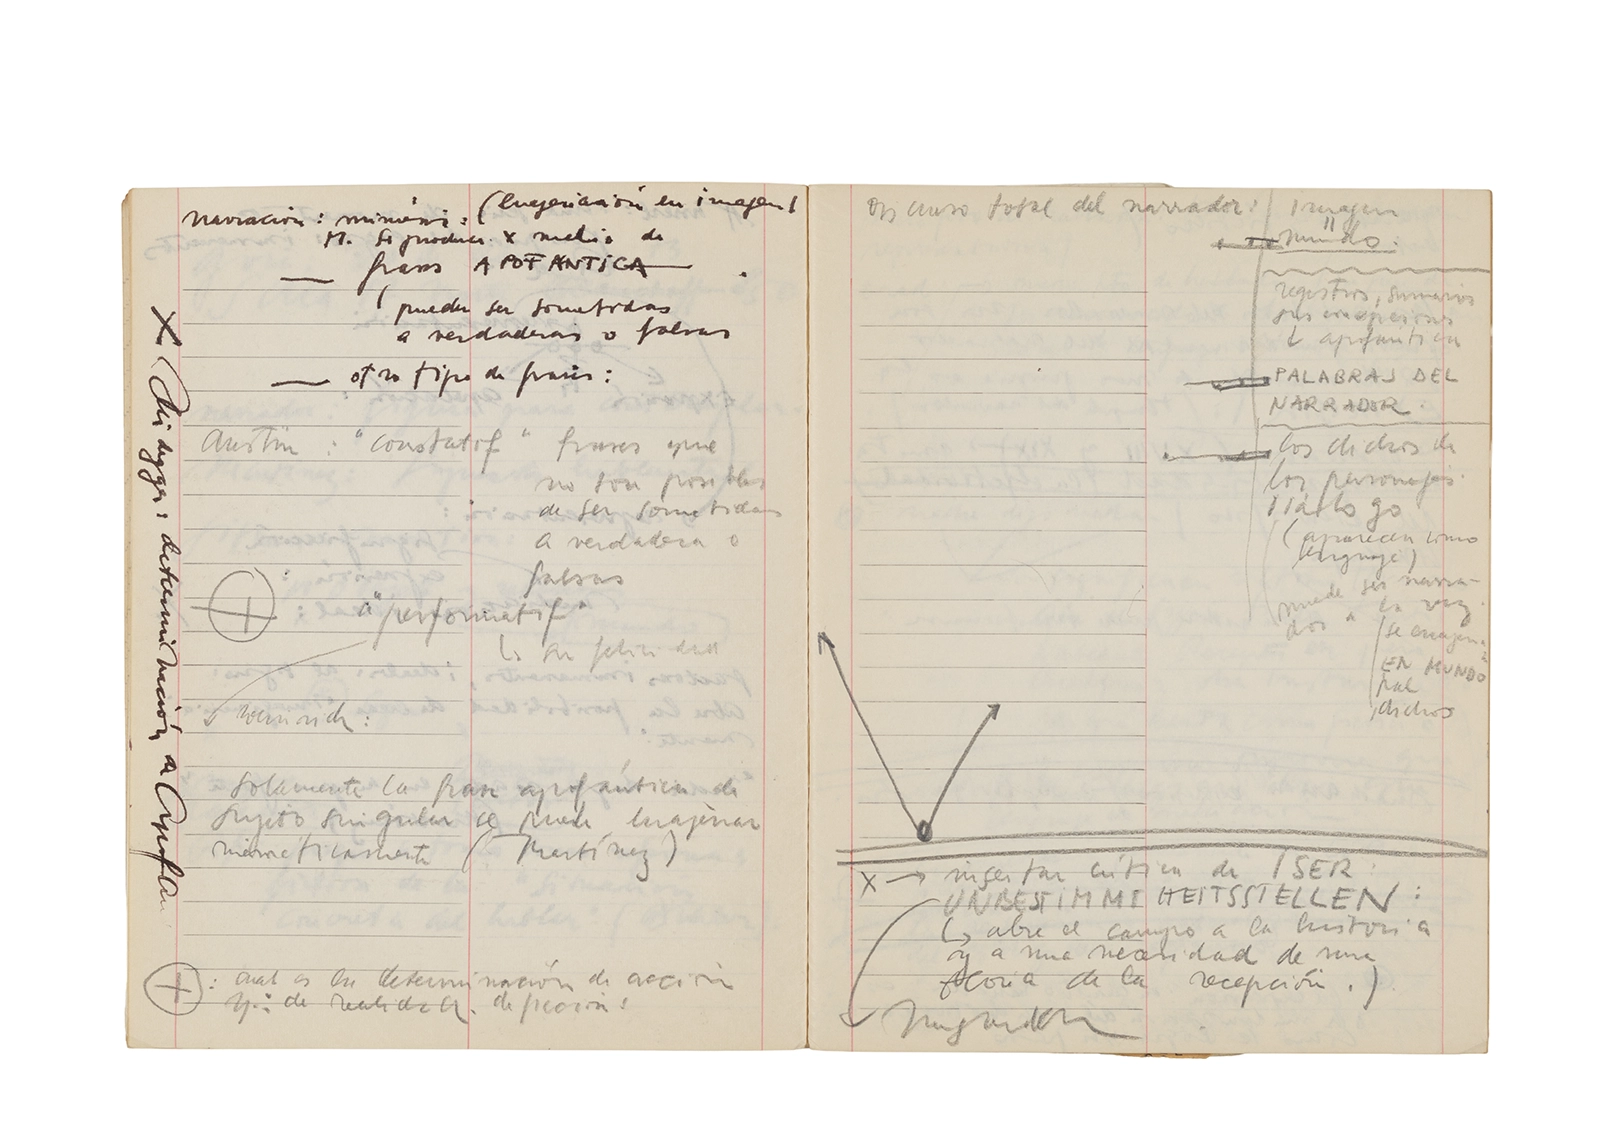 narración: mimesis: (Enajenación en imagen)
M. se produce x medio de
— frases APOFANTICA
(pueden ser sometidas
a verdaderas o falsas
— otro tipo de frases:
Austin: "constatif" frases que
no son posibles
de ser sometidas
a verdadera o
falsas
a "performatif"
↳ su felicidad
Solamente la frase apofántica de
sujeto singular se puede enajenar
miméticamente (Martínez)
: cual es la determinación de acción
y: de realidad y de ficción:
X (Heidegger: determinación de Apofan
Discurso total del narrador: Imagen
mundo.
registros, sumarios
↳ apofántica
PALABRAS DEL
NARRADOR.
los dichos de
los personajes
Diálogo
(aparecen como
lenguaje)
puede ser narra-
dos a la vez
se enajena
EN MUNDO
dichos
X → crítica de ISER:
UNBESTIMMTHEITSSTELLEN:
(↳ abre el campo a la historia
y a una necesidad de una
teoría de la recepción.)
Ingarden